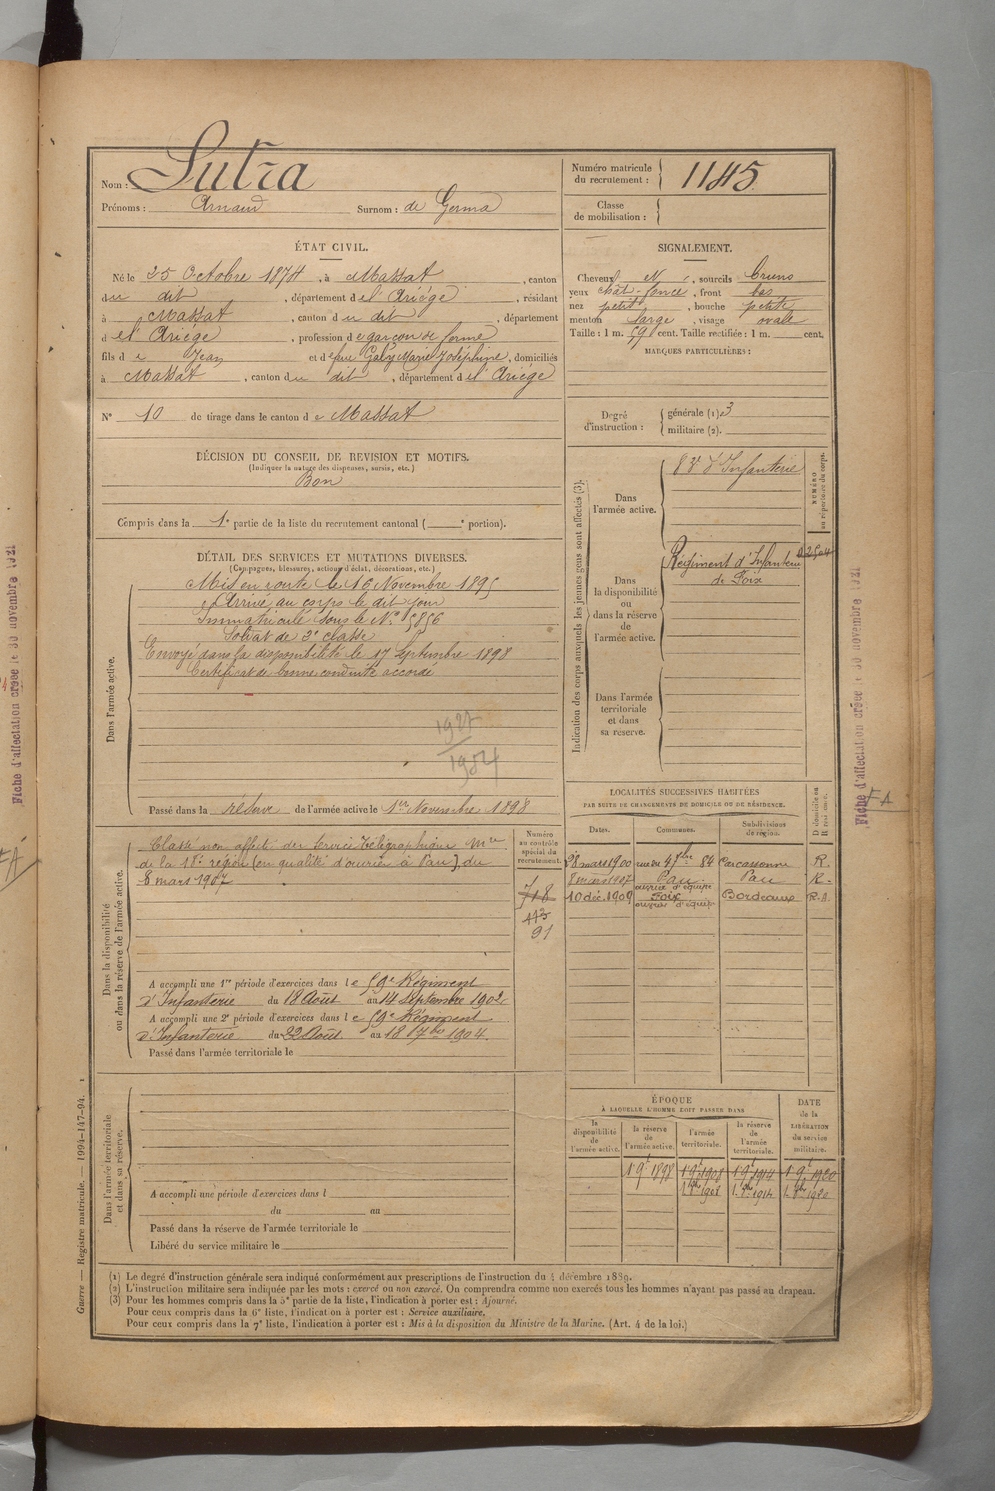 Nom : Sutra
Prénoms : Arnaud Surnom : de Germa
Numéro matricule du recrutement : 1145
Classe de mobilisation :
ÉTAT CIVIL.
Né le 25 Octobre 1874, à Massat, canton
du dit, département de l'Ariége, résidant
à Massat, canton du dit, département
de l'Ariége, profession de garçon de ferme
fils de Jean et de feue Galy Marie Joséphine, domiciliés
à Massat, canton du dit, département de l'Ariége
N° 10 de tirage dans le canton de Massat
SIGNALEMENT.
Cheveux N, sourcils bruns
yeux chât-foncé, front bas
nez petit, bouche petite
menton large, visage ovale
Taille : 1 m. 59 cent. Taille rectifiée : 1 m. cent.
MARQUES PARTICULIÈRES :
Degré d'instruction : générale (1) 3
militaire (2).
DÉCISION DU CONSEIL DE REVISION ET MOTIFS.
(Indiquer la nature des dispenses, sursis, etc.)
Bon
Compris dans la 1e partie de la liste du recrutement cantonal ( e portion).
DÉTAIL DES SERVICES ET MUTATIONS DIVERSES.
(Campagnes, blessures, actions d'éclat, décorations, etc.)
Dans l'armée active.
Mis en route le 16 Novembre 1895
Arrivé au corps le dit jour
Immatriculé sous le N° 5856
Soldat de 2e classe
Envoyé dans la disponibilité le 17 Septembre 1898
Certificat de bonne conduite accordé
Passé dans la réserve de l'armée active le 1er Novembre 1898
Indication des corps auxquels les jeunes gens sont affectés (3).
NUMÉRO au répertoire du corps.
Dans l'armée active.
83e d'Infanterie
Dans la disponibilité ou dans la réserve de l'armée active.
Régiment d'Infanterie
de Foix
Dans l'armée territoriale et dans sa réserve.
Dans la disponibilité ou dans la réserve de l'armée active.
Numéro au contrôle spécial du recrutement.
718
113
91
Classé non affecté des Services télégraphique
de la 18e région (en qualité d'ouvrier à Pau), du
8 mars 1907
A accompli une 1re période d'exercices dans le 59e Régiment
d'Infanterie du 18 Août au 14 Septembre 1902
A accompli une 2e période d'exercices dans le 59e Régiment
d'Infanterie du 22 Août au 18 7bre 1904.
Passé dans l'armée territoriale le
LOCALITÉS SUCCESSIVES HABITÉES
PAR SUITE DE CHANGEMENTS DE DOMICILE OU DE RÉSIDENCE.
Dates. Communes. Subdivisions de région. D domicile ou R résidence.
28 mars 1900 rue du 4 7bre 84 Carcassonne R.
8 mars 1907 Pau ouvrier d'équipe Pau R.
10 déc. 1909 Foix ouvrier d'équipe Bordeaux R.A.
ÉPOQUE
À LAQUELLE L'HOMME DOIT PASSER DANS
la disponibilité de l'armée active. la réserve de l'armée active. l'armée territoriale. la réserve de l'armée territoriale. DATE de la LIBÉRATION du service militaire.
1 9bre 1898 1 9bre 1908 1 9bre 1914 1 9bre 1920
Dans l'armée territoriale et dans sa réserve.
A accompli une période d'exercices dans l
du au
Passé dans la réserve de l'armée territoriale le
Libéré du service militaire le
(1) Le degré d'instruction générale sera indiqué conformément aux prescriptions de l'instruction du 4 décembre 1889.
(2) L'instruction militaire sera indiquée par les mots : exercé ou non exercé. On comprendra comme non exercés tous les hommes n'ayant pas passé au drapeau.
(3) Pour les hommes compris dans la 5e partie de la liste, l'indication à porter est : Ajourné.
Pour ceux compris dans la 6e liste, l'indication à porter est : Service auxiliaire.
Pour ceux compris dans la 7e liste, l'indication à porter est : Mis à la disposition du Ministre de la Marine. (Art. 4 de la loi.)
Guerre — Registre matricule. — 1994-147-94.
Fiche d'affectation créée le 30 novembre 1921
Fiche d'affectation créée le 30 novembre 1921
FA